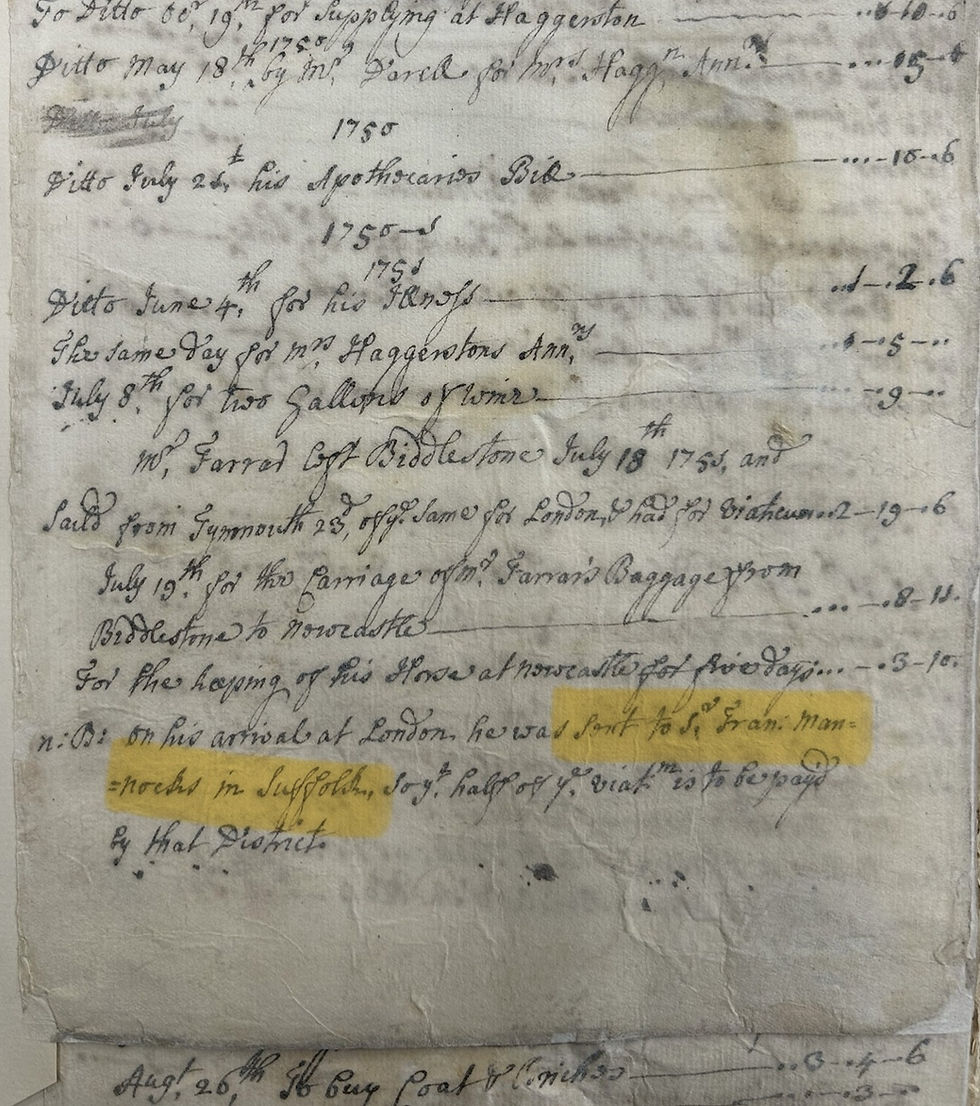 To Ditto Oct.r 19,th for Supplying at Haggerston
Ditto May 18,th 1750 by Mr. Darell for Mrs Hagg.n Ann.ys ... 15
Ditto July
1750
Ditto July 21,t his Apothecaries Bill ... -10-6
1750-1
1751
Ditto June 4,th for his Illness ..1-.2.6
The same day for mrs Haggerstons Ann,ys 1-5-..
July 8,th for two Gallons of Wine -9-..
Mr, Farrar left Biddlestone July 18th 1751, and
Saild from Tynmouth 23,d of ye. same for London, & had for Viaticum..2-19-6
July 19,th for the Carriage of mr. Farrar's Baggage from
Biddlestone to Newcastle ...-.8-11.
For the keeping of his Horse at Newcastle for five days...-.3-10.
n:B: on his arrival at London, he was sent to Sr. Fran: Man=
=nocks in Suffolk, so yt. half of ye. viatm is to be payd
by that District.
Augt. 26,th To buy Coat & Britches ..3-.4-6
..3-